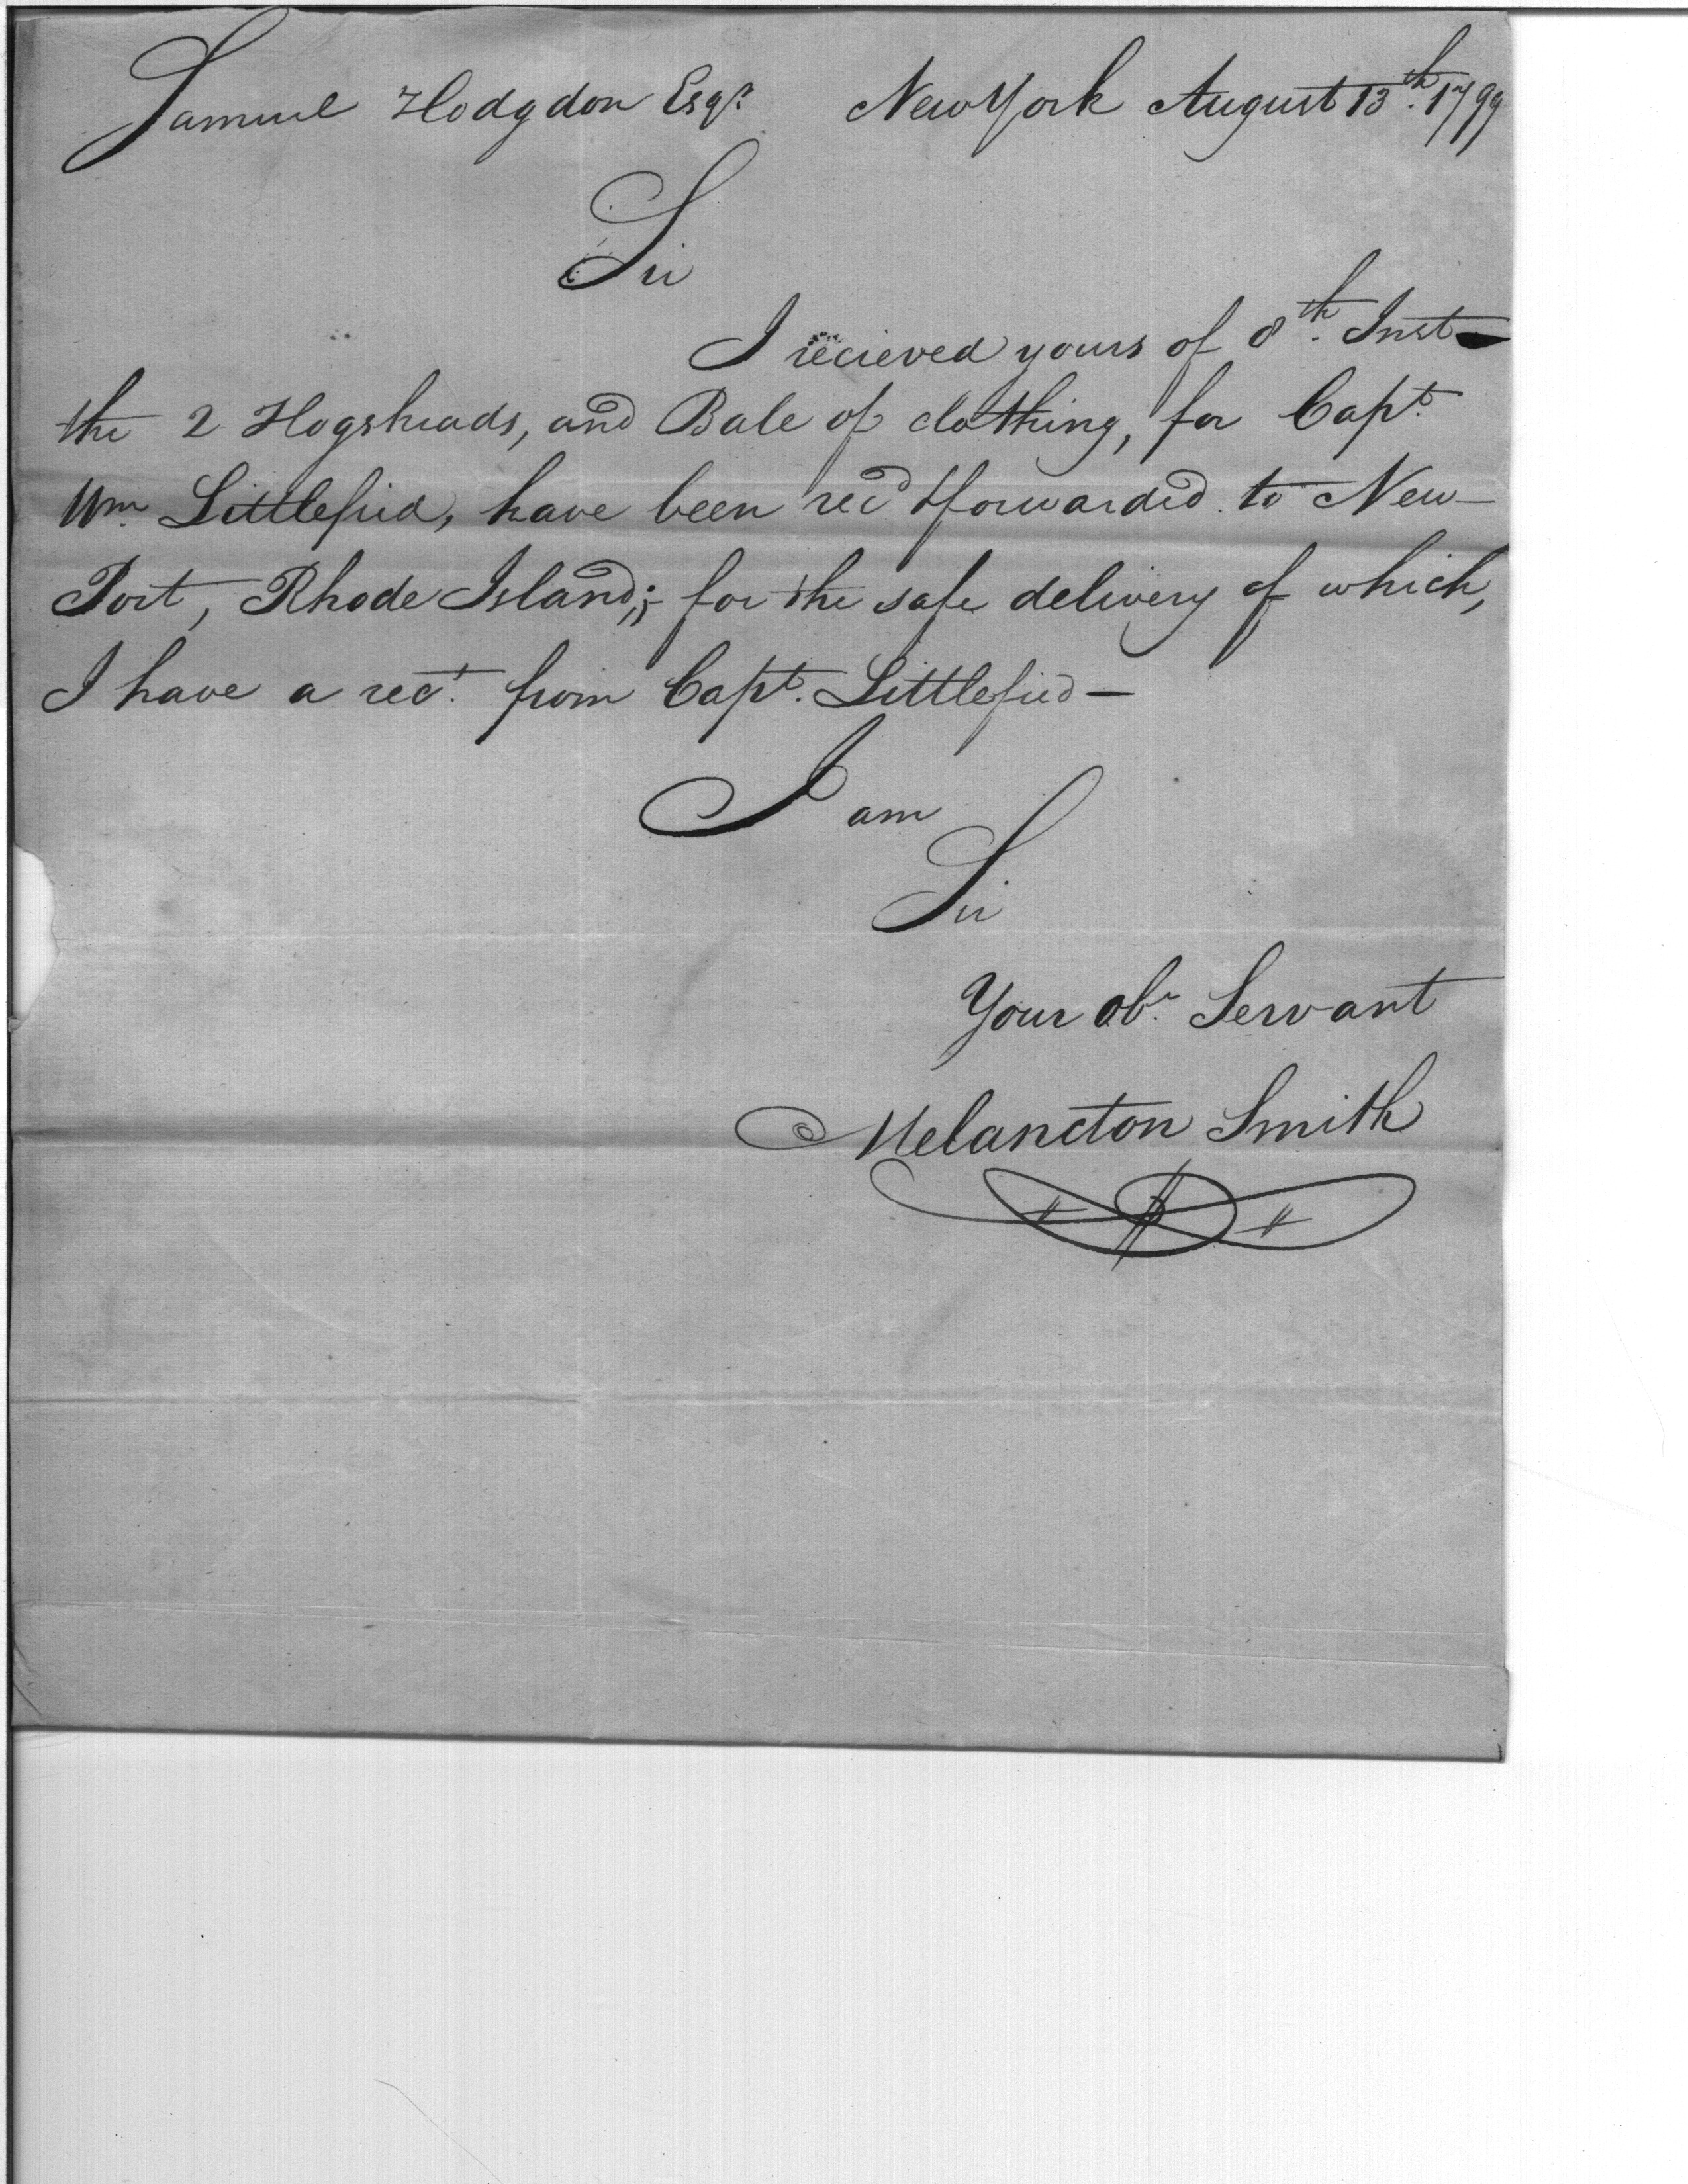 Samuel Hodgdon Esqr. New York August 13th. 1799
Sir
I recieved yours of 8th. Inst
the 2 Hogsheads, and Bale of clothing, for Capt.
Wm. Littlefied, have been recd & forwarded to New-
Port, Rhode Island;- for the safe delivery of which,
I have a rect. from Capt. Littlefied —
I am
Sir
Your obt. Servant
Melancton Smith